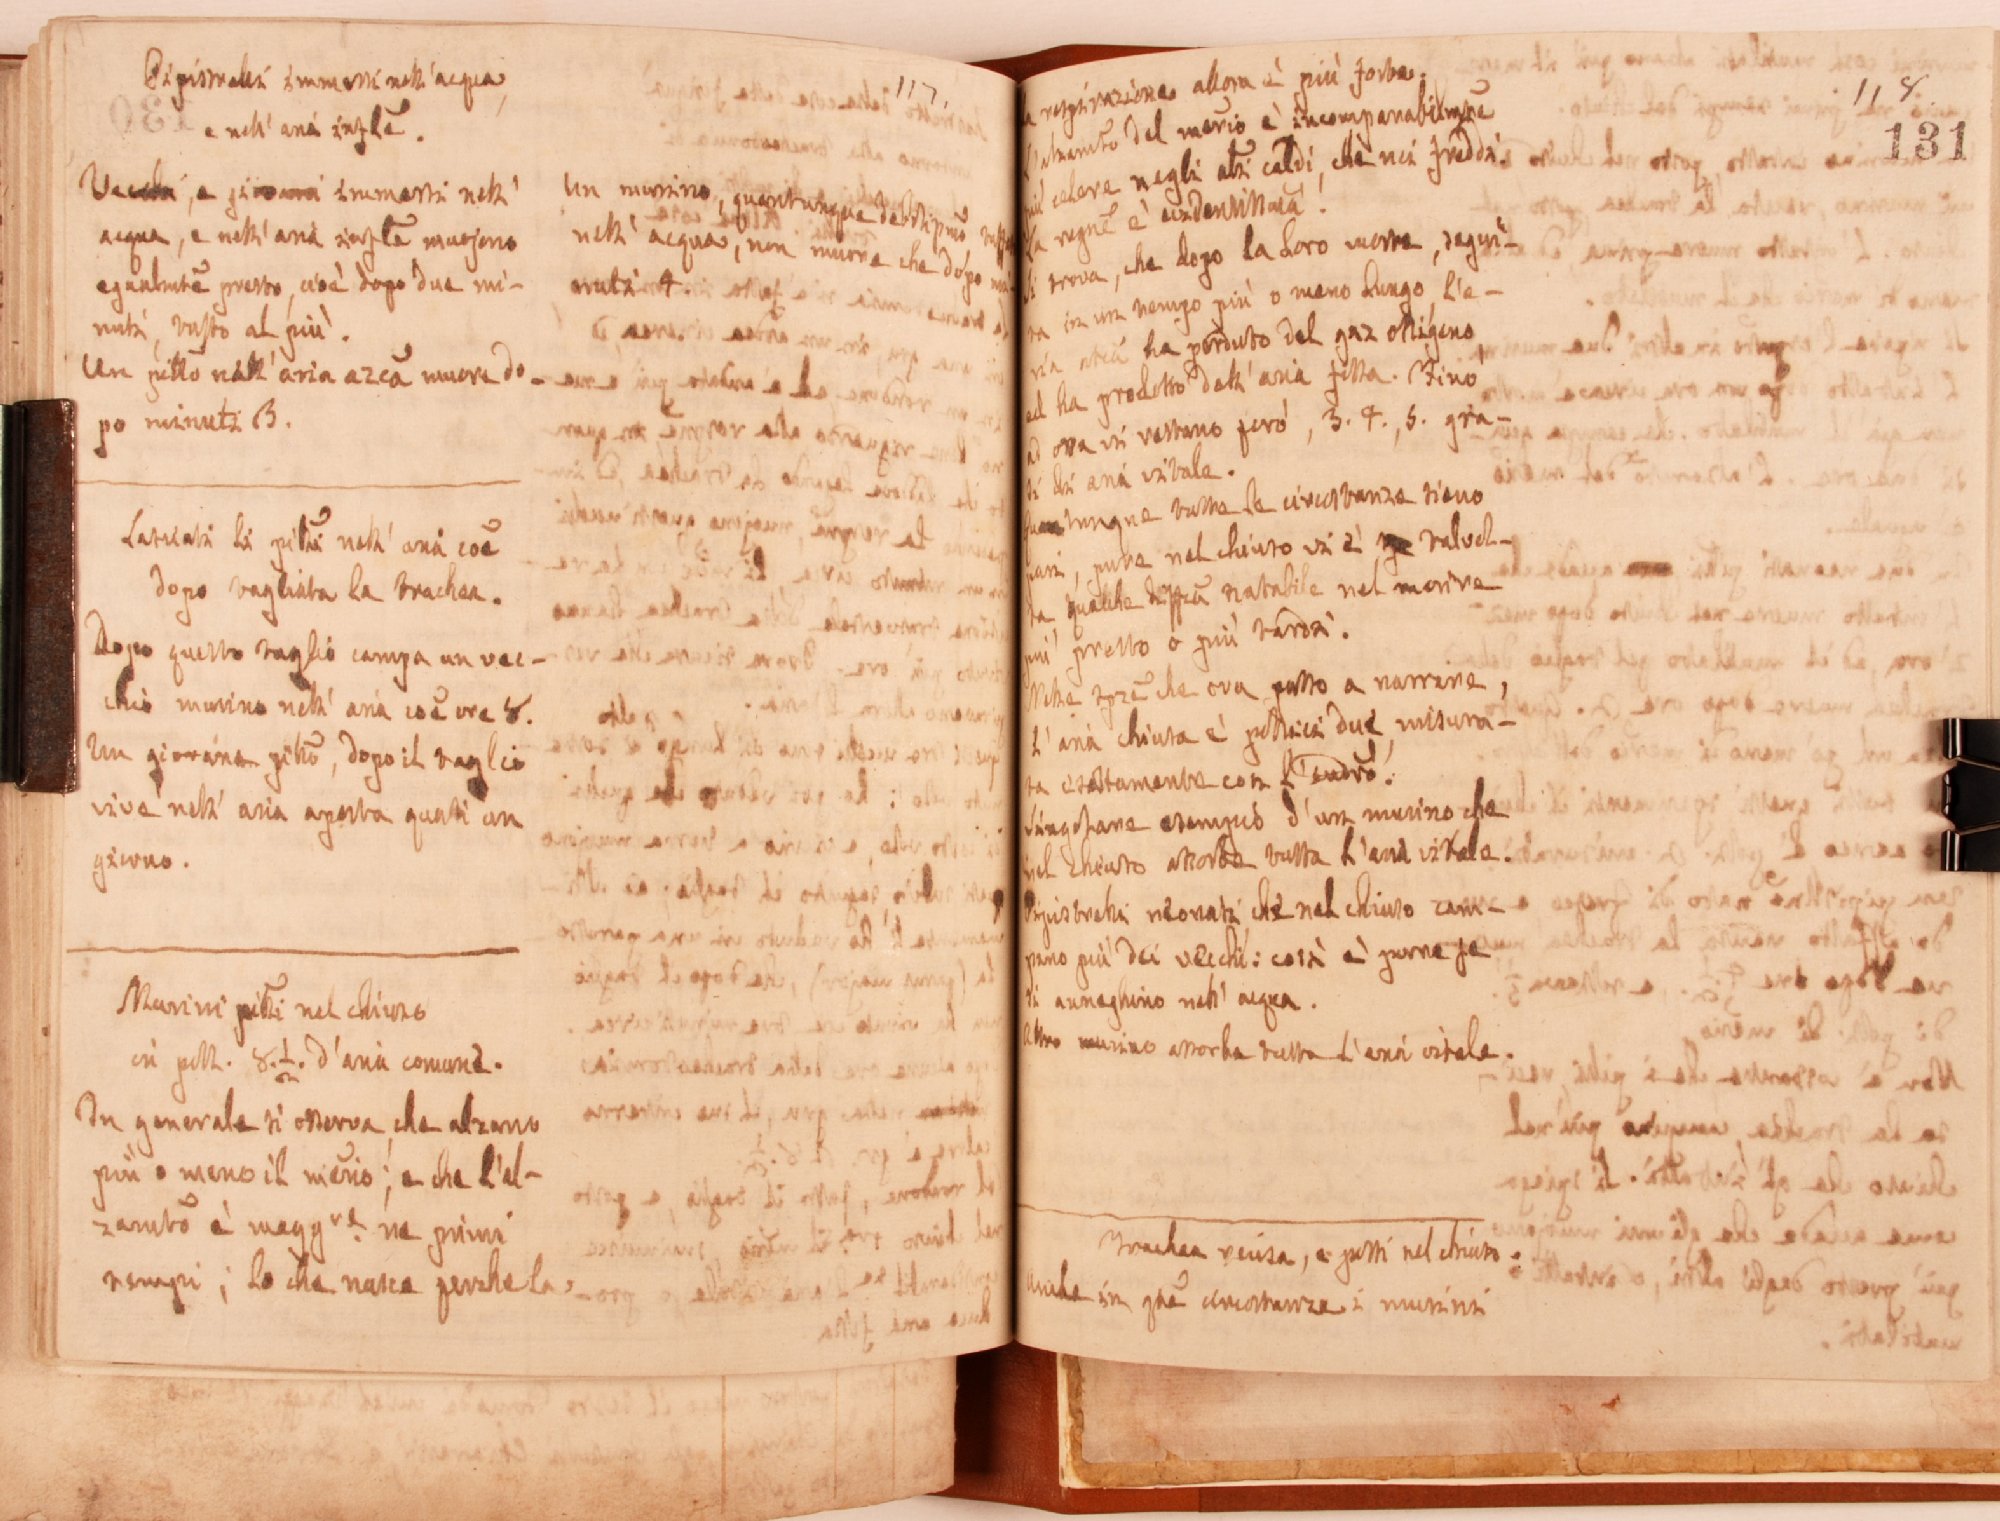 117.
Pipistrelli immersi nell'acqua,
e nell'aria infĩe.
Vecchi, e giovani immersi nell'
acqua, e nell'aria infĩe muojono
egualmẽte presto, cioè dopo due mi-
nuti, tutto al più.
Un pittõ nell'aria muore do-
po minuti 3.
Un mussino, quantunque tuffato
nell'acqua, non muore che dopo mi-
nuti 4.
Lasciati li pittĩ nell'aria coẽ
dopo tagliata la trachea.
Dopo questo taglio campa un vec-
chio musino nell'aria coẽ ore 8.
Un giovane pittõ, dopo il taglio
vive nell'aria aperta quasi un
giorno.
Musini pittĩ nel chiuso
in poll. 8.½. d'aria comune.
In generale si osserva, che alzano
più o meno il mẽrio; e che l'al-
zamẽto è magg.re ne primi
tempi; lo che nasce perche la
118.
131
la respirazione allora è più forte.
L'alzamẽto del mẽrio è incomparabilmẽte
più celere negli altĩ caldi, che nei freddi.
La ragnẽ è evidentissima!
Si trova, che dopo la loro morte, segui-
ta in un tempo più o meno lungo, l'a-
ria ha perduto del gaz ossigeno
ed ha prodotto dell'aria fissa. Fino
ad ora vi restano però, 3. 4., 5. gra-
di di aria vitale.
Quantunque tutte le circostanze sieno
pari, pure nel chiuso vi è talvol-
ta qualche diffẽa notabile nel morire
più presto o più tardi.
Nelle spzẽ che ora passo a narrare,
l'aria chiusa è pollici due, misura-
ta esattamente con l'eudrõ.
Singolare esempio d'un musino che
nel chiuso assorbe tutta l'aria vitale.
Pipistrelli neonati che nel chiuso cam-
pano più dei vecchi: così è pure se
si anneghino nell'acqua.
Altro musino assorbe tutta l'aria vitale.
Trachea recisa, e posti nel chiuso.
Anche in qũe circostanze i musini